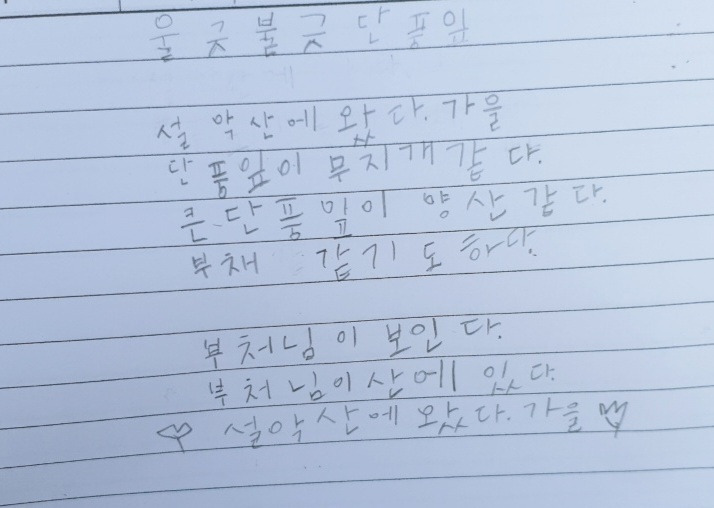 울긋불긋 단풍잎
설악산에 왔다. 가을
단풍잎이 무지개같다.
큰 단풍잎이 양산같다.
부채 같기도 하다.
부처님이 보인다.
부처님이 산에 있다.
♡ 설악산에 왔다. 가을 ♡